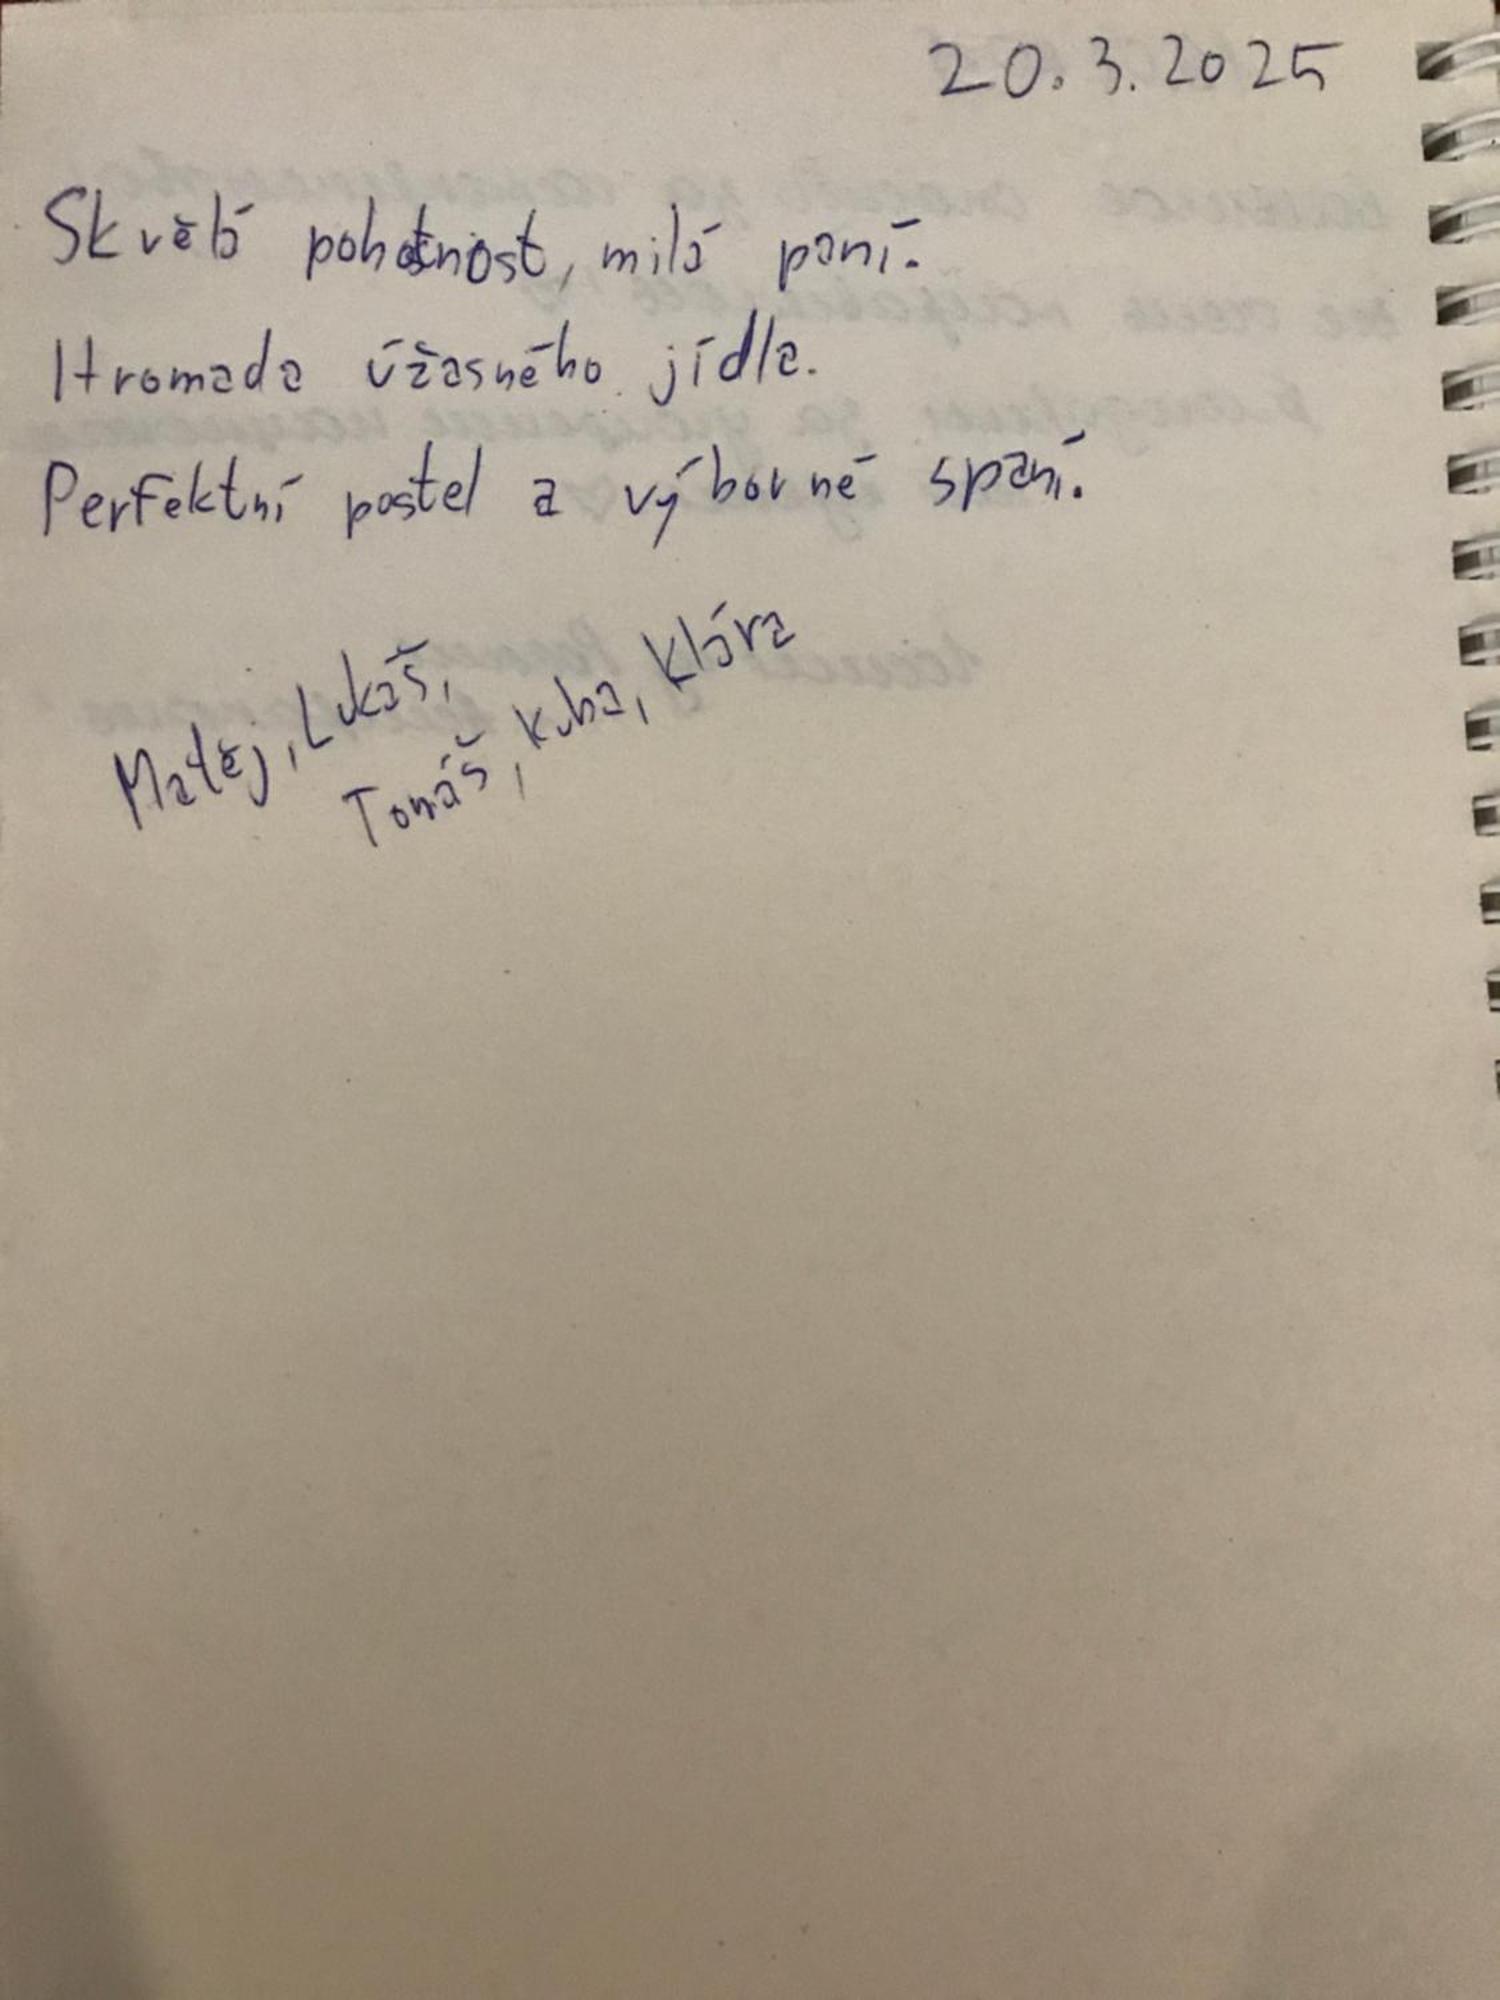 20.3.2025
Skvělá pohotnost, milá paní.
Hromada úžasného jídla.
Perfektní postel a výborné spaní.
Matěj, Lukáš,
Tomáš, Kuba, Klára